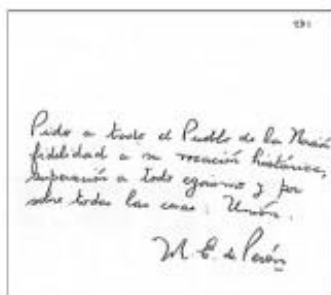 Pido a todo el Pueblo de la Nación
fidelidad a su vocación histórica,
superación a todo egoismo y por
sobre todas las cosas: Unión.
M. E. de Perón